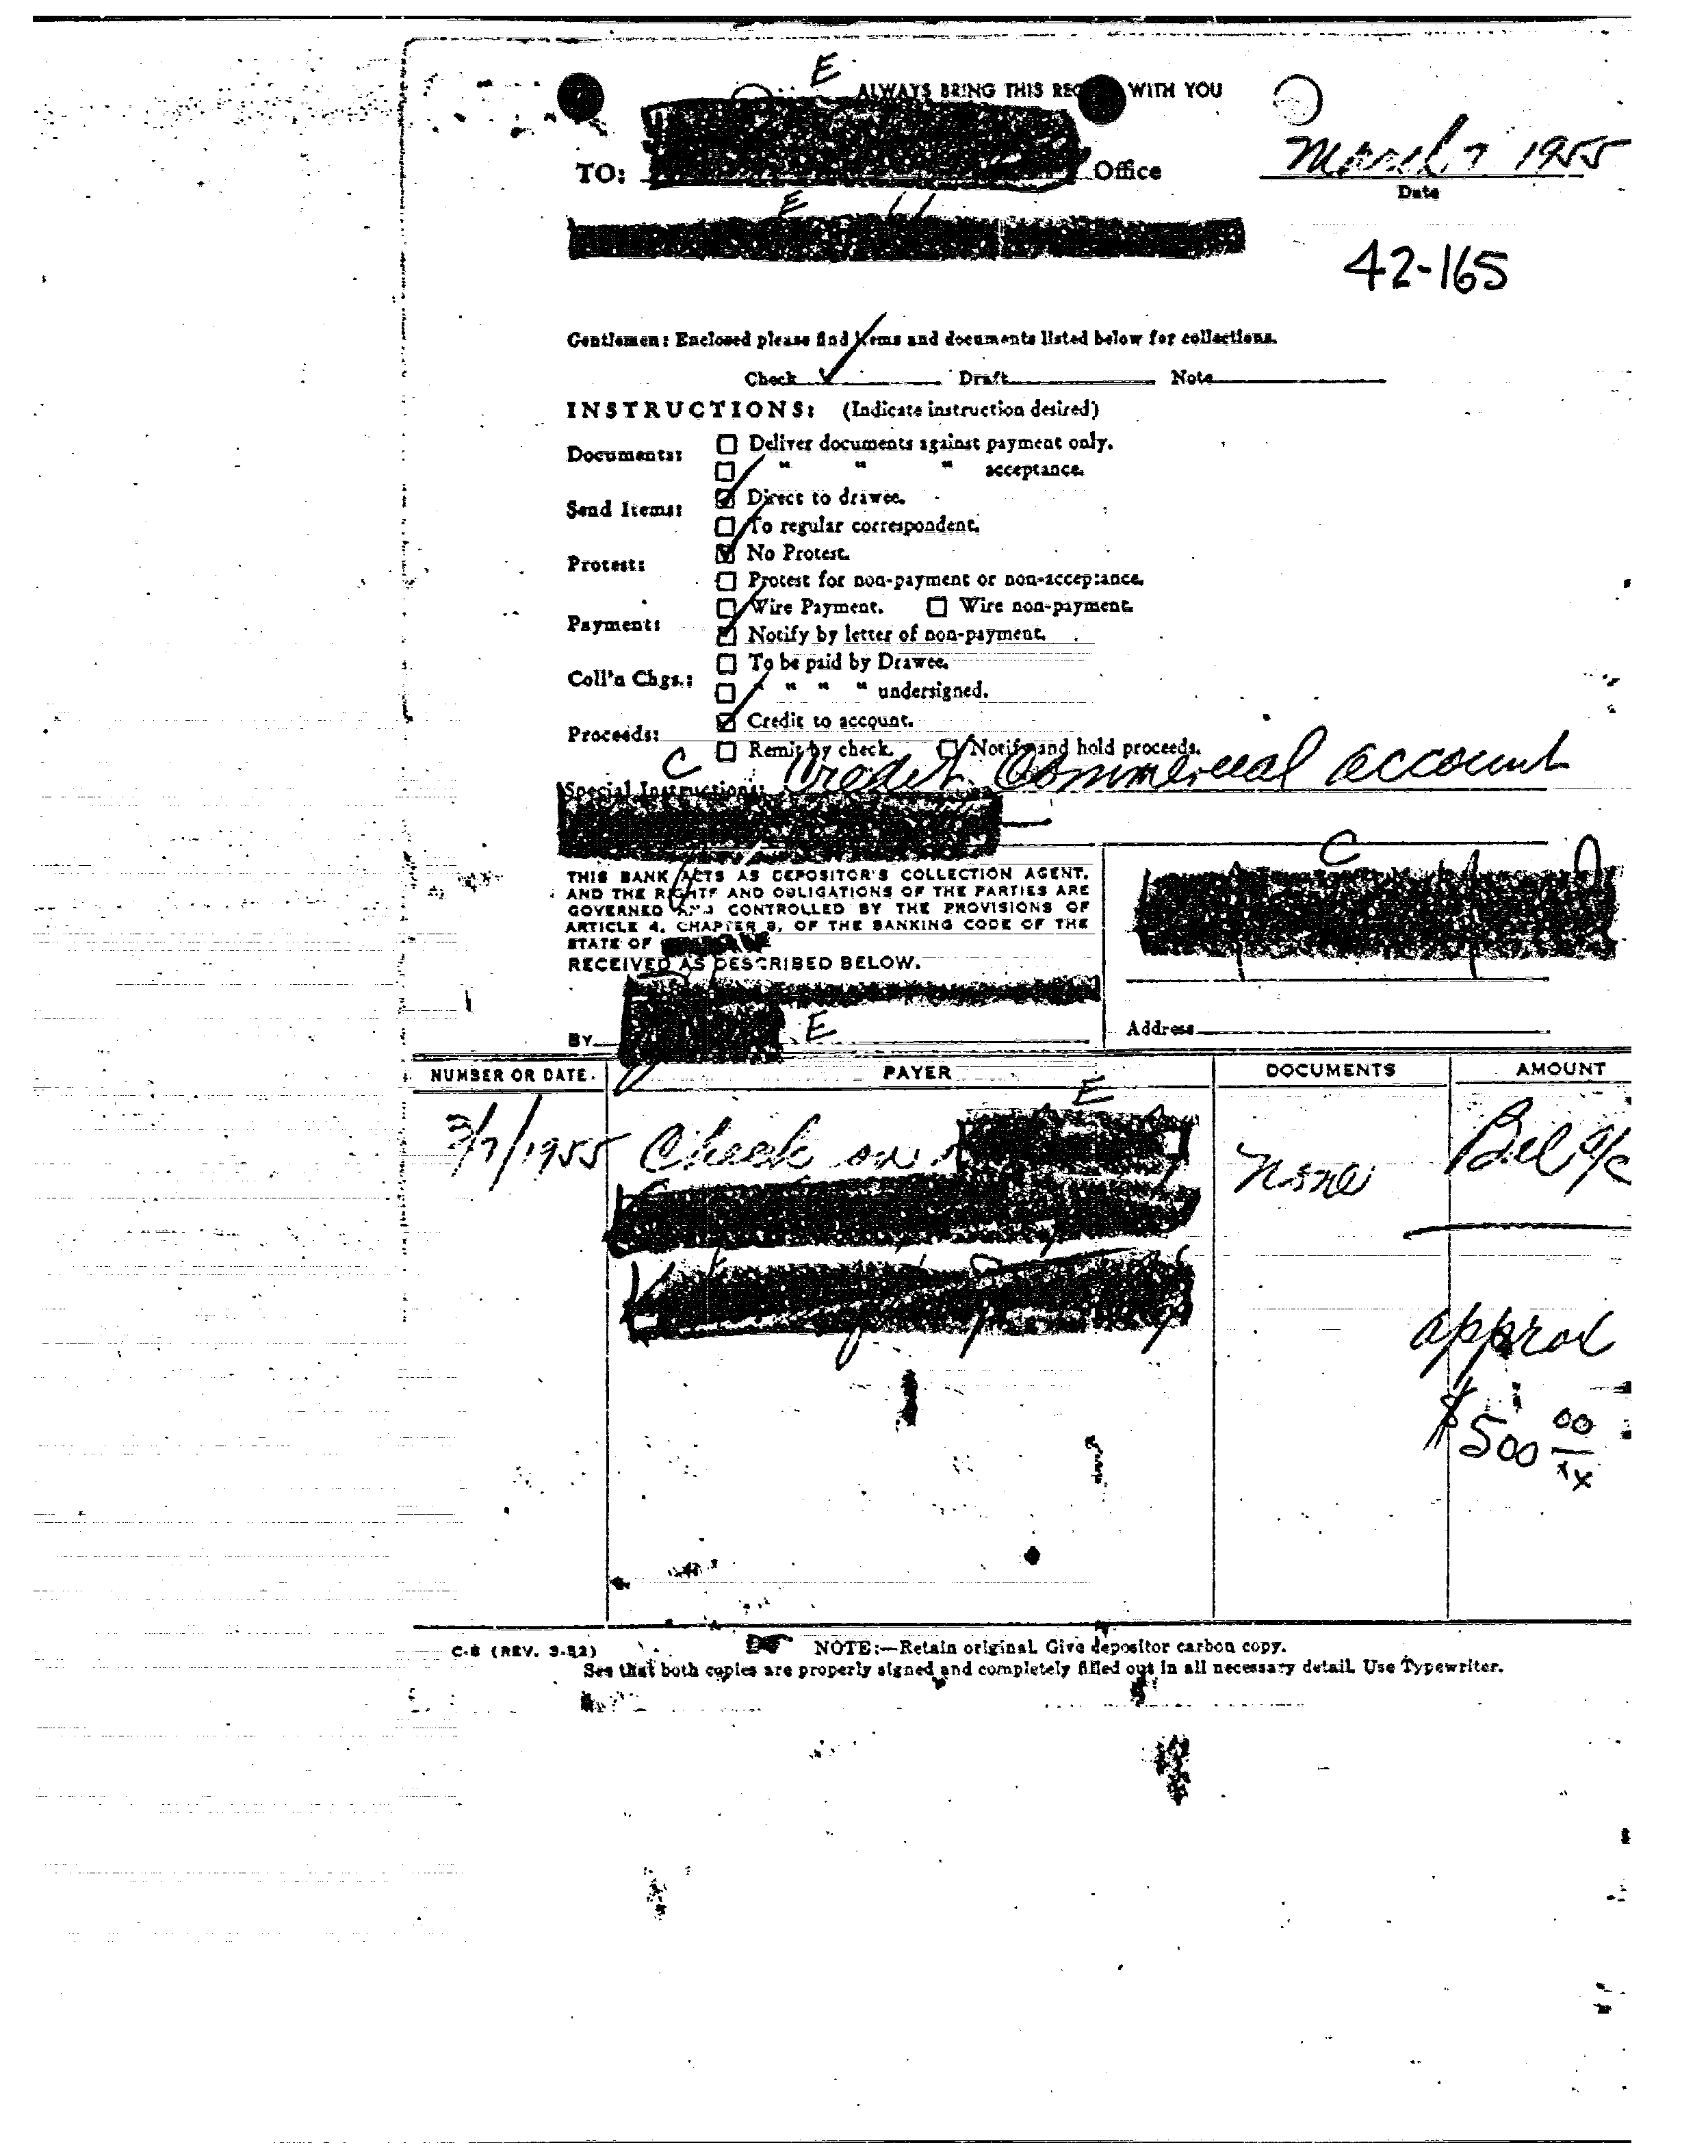 E
ALWAYS BRING THIS REC WITH YOU
TO: Office March 7 1955
Date
E
42-165
Gentlemen: Enclosed please find items and documents listed below for collections.
Check ✓ Draft Note
INSTRUCTIONS: (Indicate instruction desired)
Documents: ☐ Deliver documents against payment only.
☐ " " " acceptance.
Send Items: ☑ Direct to drawee.
☐ To regular correspondent.
Protest: ☑ No Protest.
☐ Protest for non-payment or non-acceptance.
☐ Wire Payment. ☐ Wire non-payment.
Payment: ☑ Notify by letter of non-payment.
Coll'n Chgs.: ☐ To be paid by Drawee.
☐ " " " " undersigned.
Proceeds: ☑ Credit to account.
☐ Remit by check. ☐ Notify and hold proceeds.
C
Special Instructions: Credit Commercial account
C
THIS BANK ACTS AS DEPOSITOR'S COLLECTION AGENT,
AND THE RIGHTS AND OBLIGATIONS OF THE PARTIES ARE
GOVERNED AND CONTROLLED BY THE PROVISIONS OF
ARTICLE 4, CHAPTER 8, OF THE BANKING CODE OF THE
STATE OF
RECEIVED AS DESCRIBED BELOW.
BY E Address
NUMBER OR DATE. PAYER DOCUMENTS AMOUNT
E
3/7/1955 Check on None Bal a/c
approx
$500 00/xx
C-8 (REV. 3-52) NOTE:—Retain original. Give depositor carbon copy.
See that both copies are properly signed and completely filled out in all necessary detail. Use Typewriter.